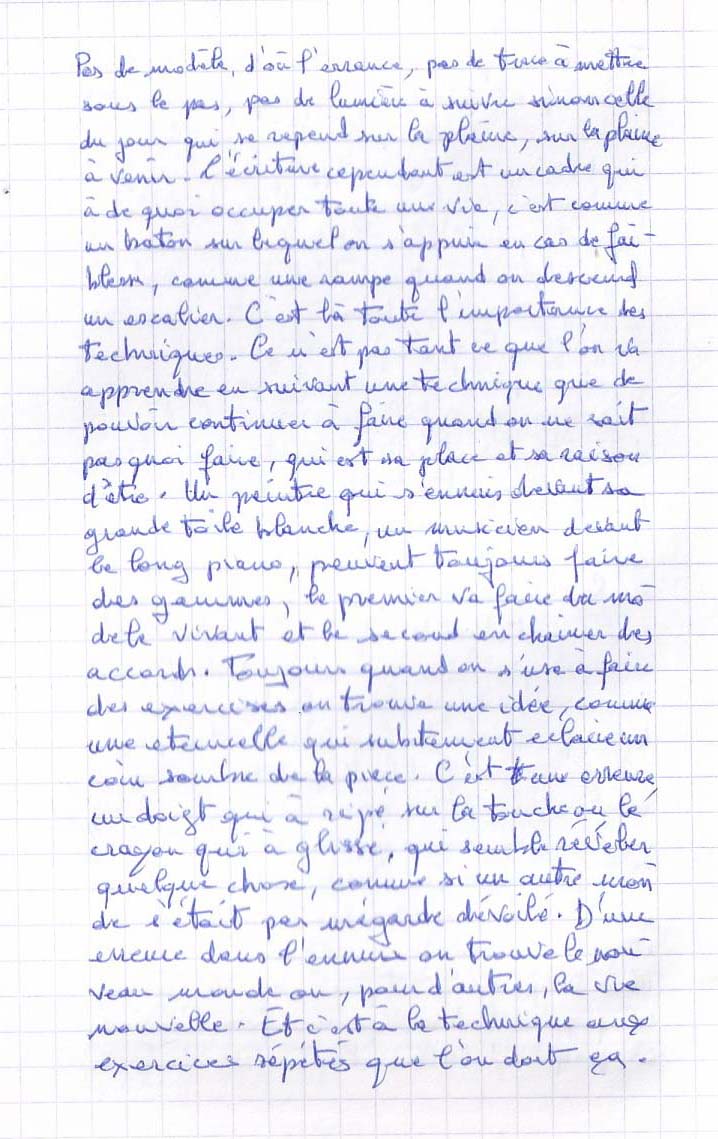 Pas de modèle, d'où l'errance, pas de trace à mettre
sous le pas, pas de lumière à suivre sinon celle
du jour qui se repend sur la plaine, sur la plaine
à venir. L'écriture cependant est un cadre qui
à de quoi occuper toute une vie, c'est comme
un baton sur lequel on s'appuie en cas de fai-
blesse, comme une rampe quand on descend
un escalier. C'est là toute l'importance des
techniques. Ce n'est pas tant ce que l'on va
apprendre en suivant une technique que de
pouvoir continuer à faire quand on ne sait
pas quoi faire, qui est sa place et sa raison
d'être. Un peintre qui s'ennuie devant sa
grande toile blanche, un musicien devant
le long piano, peuvent toujours faire
des gammes, le premier va faire du mo-
dele vivant et le second enchainer des
accords. Toujours quand on s'use à faire
des exercices on trouve une idée, comme
une etincelle qui subitement eclaire un
coin sombre de la piece. C'est une erreur,
un doigt qui à ripé sur la touche ou le
crayon qui à glissé, qui semble révéler
quelque chose, comme si un autre mon
de s'était par mégarde dévoilé. D'une
erreur dans l'ennui on trouve le nou-
veau monde ou, pour d'autres, la vie
nouvelle. Et c'est à la technique aux
exercices répétés que l'on doit ça.